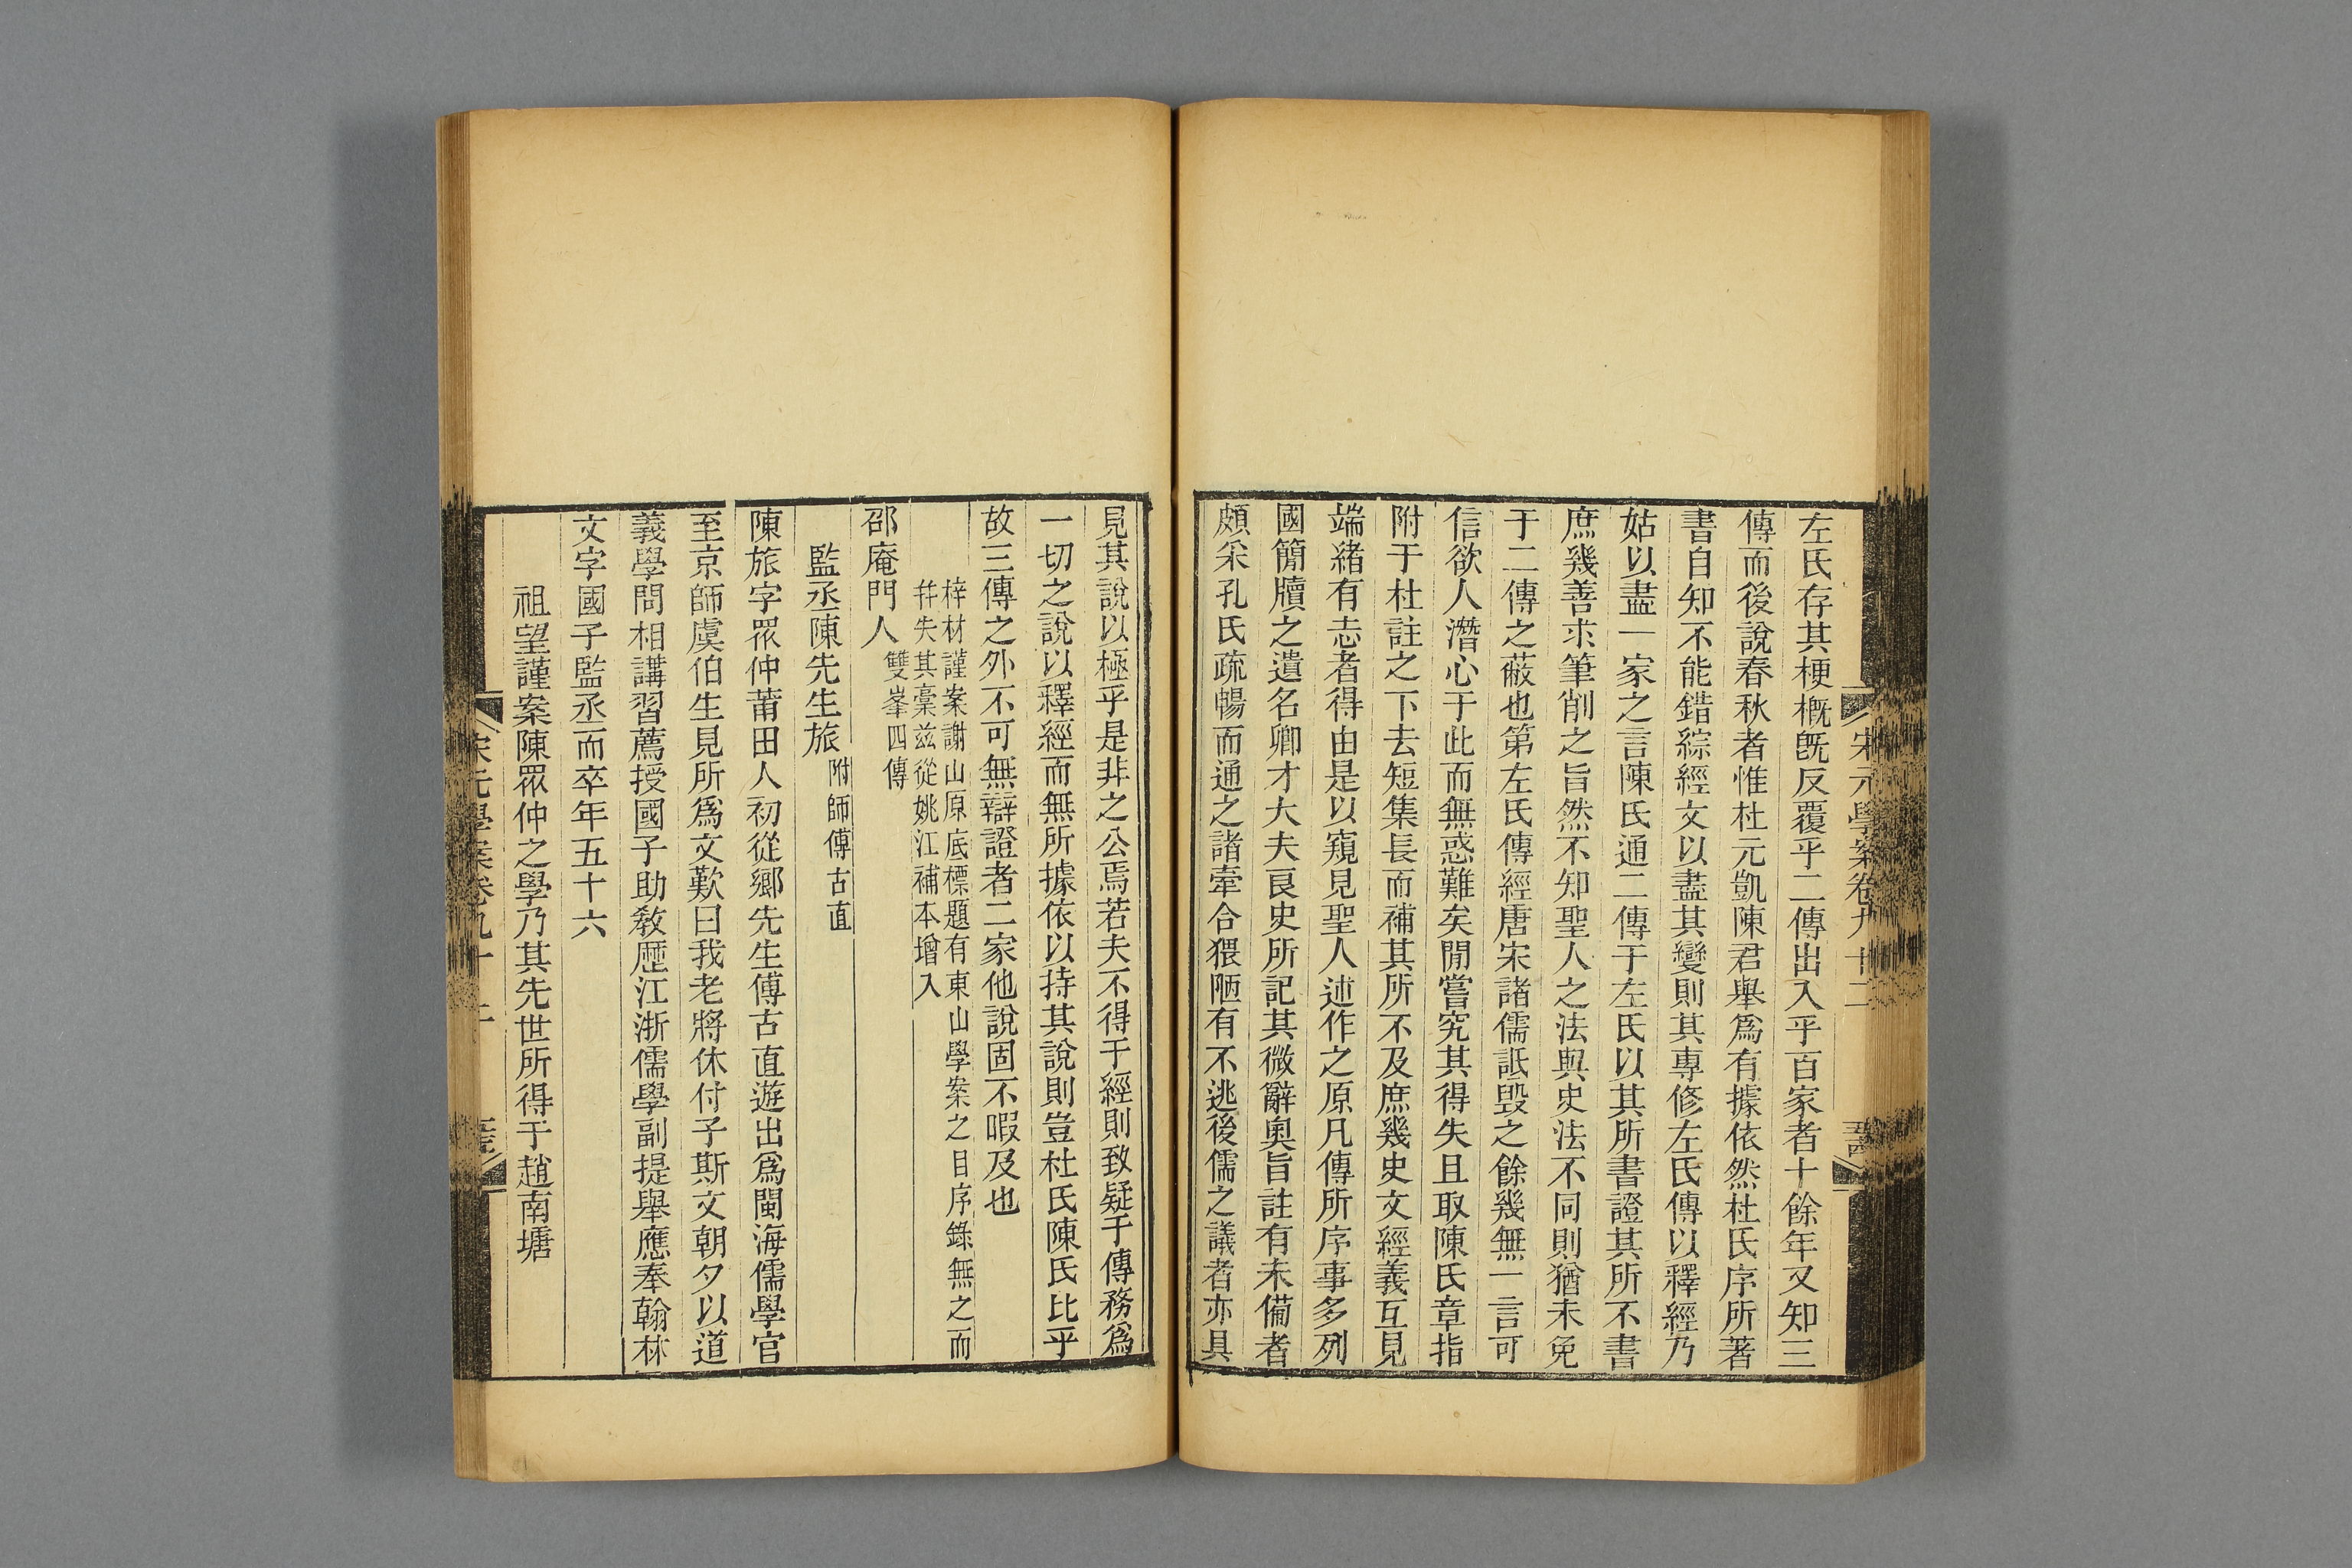 宋元學案卷九十二
左氏存其梗概旣反覆乎二傳出入乎百家者十餘年又知三
傳而後說春秋者惟杜元凱陳君舉爲有據依然杜氏序所著
書自知不能錯綜經文以盡其變則其專修左氏傳以釋經乃
姑以盡一家之言陳氏通二傳于左氏以其所書證其所不書
庶幾善求筆削之旨然不知聖人之法與史法不同則猶未免
于二傳之蔽也第左氏傳經唐宋諸儒詆毀之餘幾無一言可
信欲人潛心于此而無惑難矣閒嘗究其得失且取陳氏章指
附于杜註之下去短集長而補其所不及庶幾史文經義互見
端緖有志者得由是以窺見聖人述作之原凡傳所序事多列
國簡牘之遺名卿才大夫良史所記其微辭奧旨註有未備者
頗采孔氏疏暢而通之諸牽合猥陋有不逃後儒之議者亦具
見其說以極乎是非之公焉若夫不得于經則致疑于傳務爲
一切之說以釋經而無所據依以持其說則豈杜氏陳氏比乎
故三傳之外不可無辯證者二家他說固不暇及也
梓材謹案謝山原底標題有東山學案之目序錄無之而
幷失其稾茲從姚江補本增入
邵庵門人雙峯四傳
監丞陳先生旅附師傅古直
陳旅字眾仲莆田人初從鄉先生傅古直遊出爲閩海儒學官
至京師虞伯生見所爲文歎曰我老將休付子斯文朝夕以道
義學問相講習薦授國子助敎歷江浙儒學副提舉應奉翰林
文字國子監丞而卒年五十六
祖望謹案陳眾仲之學乃其先世所得于趙南塘
宋元學案卷九十二